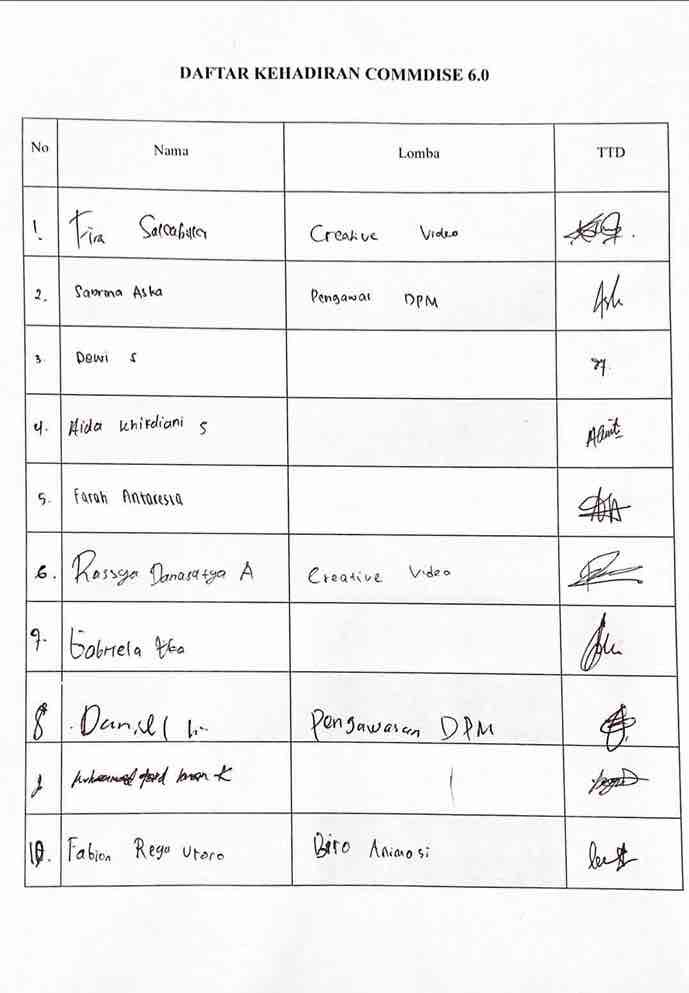 DAFTAR KEHADIRAN COMMDISE 6.0
No Nama Lomba TTD
1. Fira Salsabilla Creative Video
2. Sabrina Aska Pengawas DPM
3. Dewi S
4. Aida Khirdiani S
5. Farah Antaresta
6. Rossya Danasatya A Creative Video
7. Gabriela
8 Daniel Pengawasan DPM
9 K
10. Fabian Rega Utoro Biro Animasi